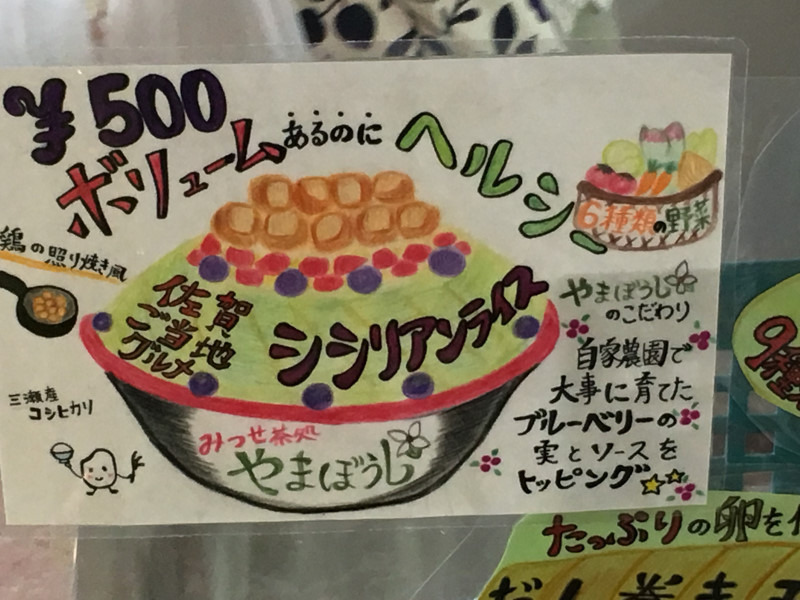 ¥500
ボリューム
あるのに
ヘルシー
6種類の野菜
鶏の照り焼き風
佐賀
ご当地
グルメ
シシリアンライス
三瀬産
コシヒカリ
みつせ茶処
やまぼうし
やまぼうし
のこだわり
自家農園で
大事に育てた
ブルーベリーの
実とソースを
トッピング
9種
たっぷりの卵を
だし巻き